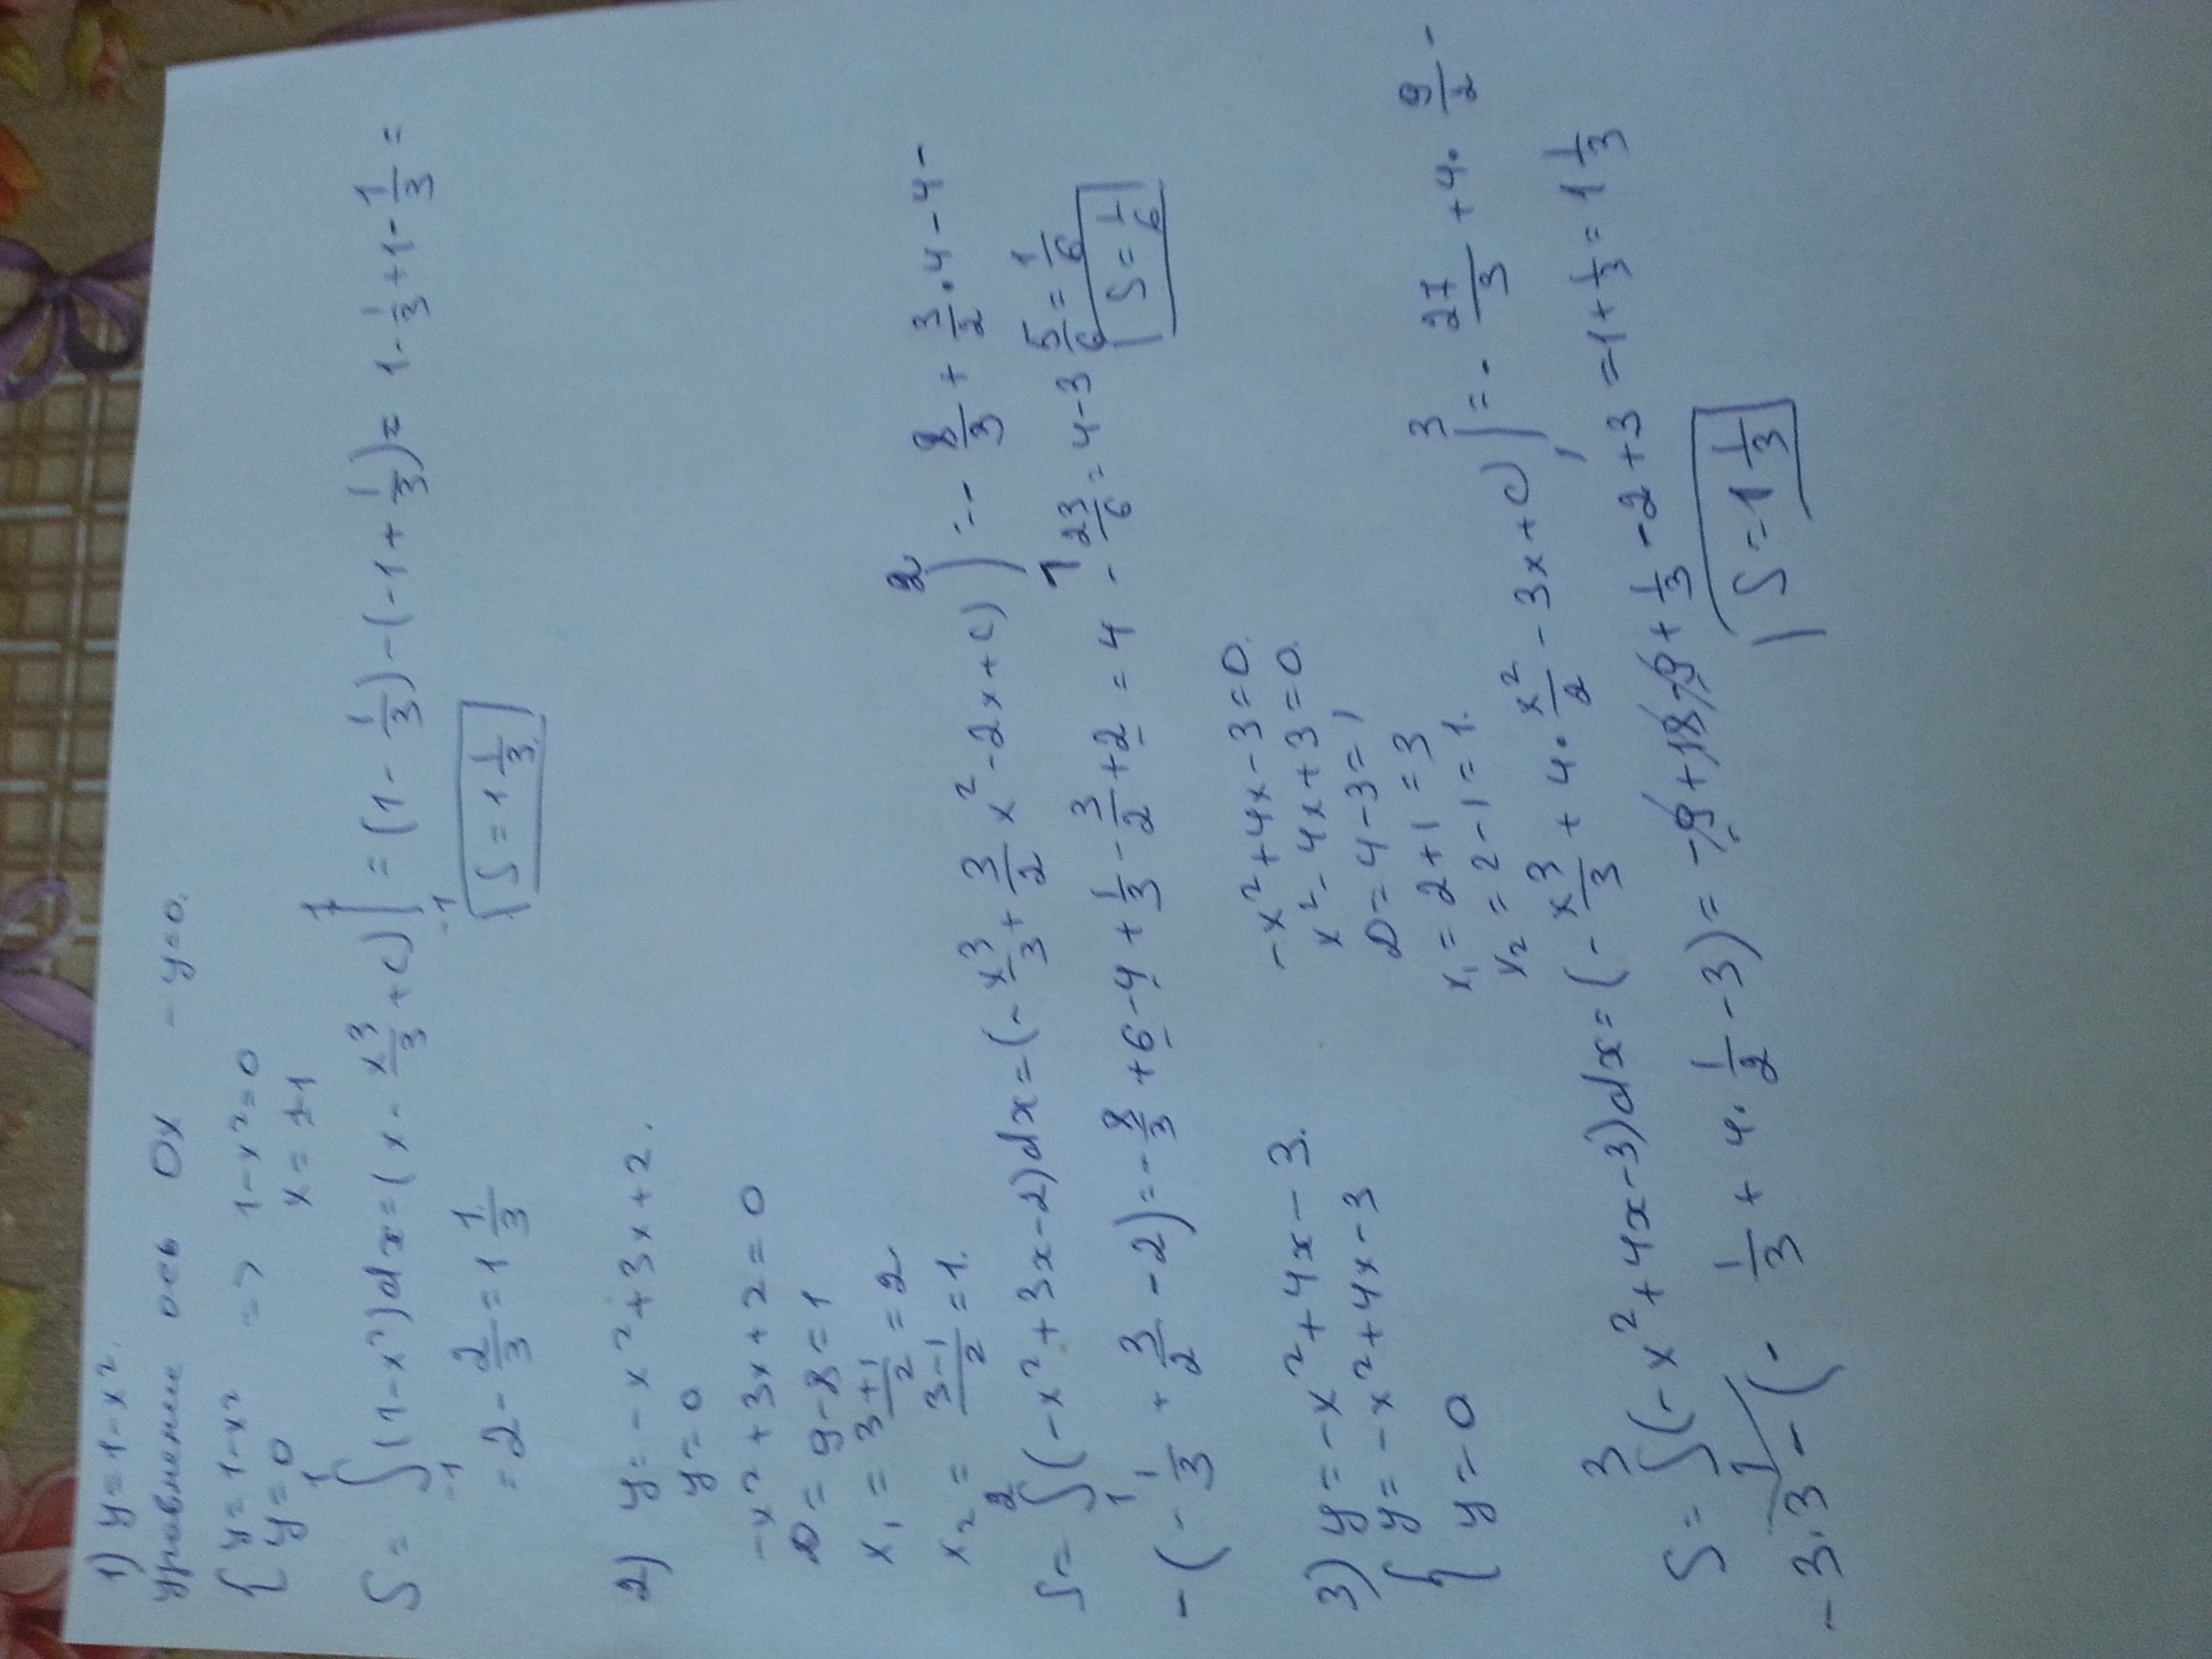 1) y=1-x².
уравнение ось Ox - y=0.
{ y=1-x² => 1-x²=0
y=0 x=±1
S = ∫₋₁¹ (1-x²)dx = (x - x³/3 + C) |₋₁¹ = (1 - 1/3) - (-1 + 1/3) = 1 - 1/3 + 1 - 1/3 =
= 2 - 2/3 = 1 1/3. S = 1 1/3.
2) y = -x² + 3x + 2.
y = 0
-x² + 3x + 2 = 0
D = 9 - 8 = 1
x₁ = 3+1/2 = 2
x₂ = 3-1/2 = 1.
S = ∫₁² (-x² + 3x - 2)dx = (-x³/3 + 3/2 x² - 2x + C) |₁² = - 8/3 + 3/2 · 4 - 4 -
- (- 1/3 + 3/2 - 2) = - 8/3 + 6 - 4 + 1/3 - 3/2 + 2 = 4 - 23/6 = 4 - 3 5/6 = 1/6
S = 1/6
3) y = -x² + 4x - 3. -x² + 4x - 3 = 0.
{ y = -x² + 4x - 3 x² - 4x + 3 = 0.
y = 0 D = 4 - 3 = 1
x₁ = 2 + 1 = 3
x₂ = 2 - 1 = 1.
S = ∫₁³ (-x² + 4x - 3)dx = (- x³/3 + 4 · x²/2 - 3x + C) |₁³ = - 27/3 + 4 · 9/2 -
- 3·3 - (- 1/3 + 4 · 1/2 - 3) = -9 + 18 - 9 + 1/3 - 2 + 3 = 1 + 1/3 = 1 1/3
S = 1 1/3